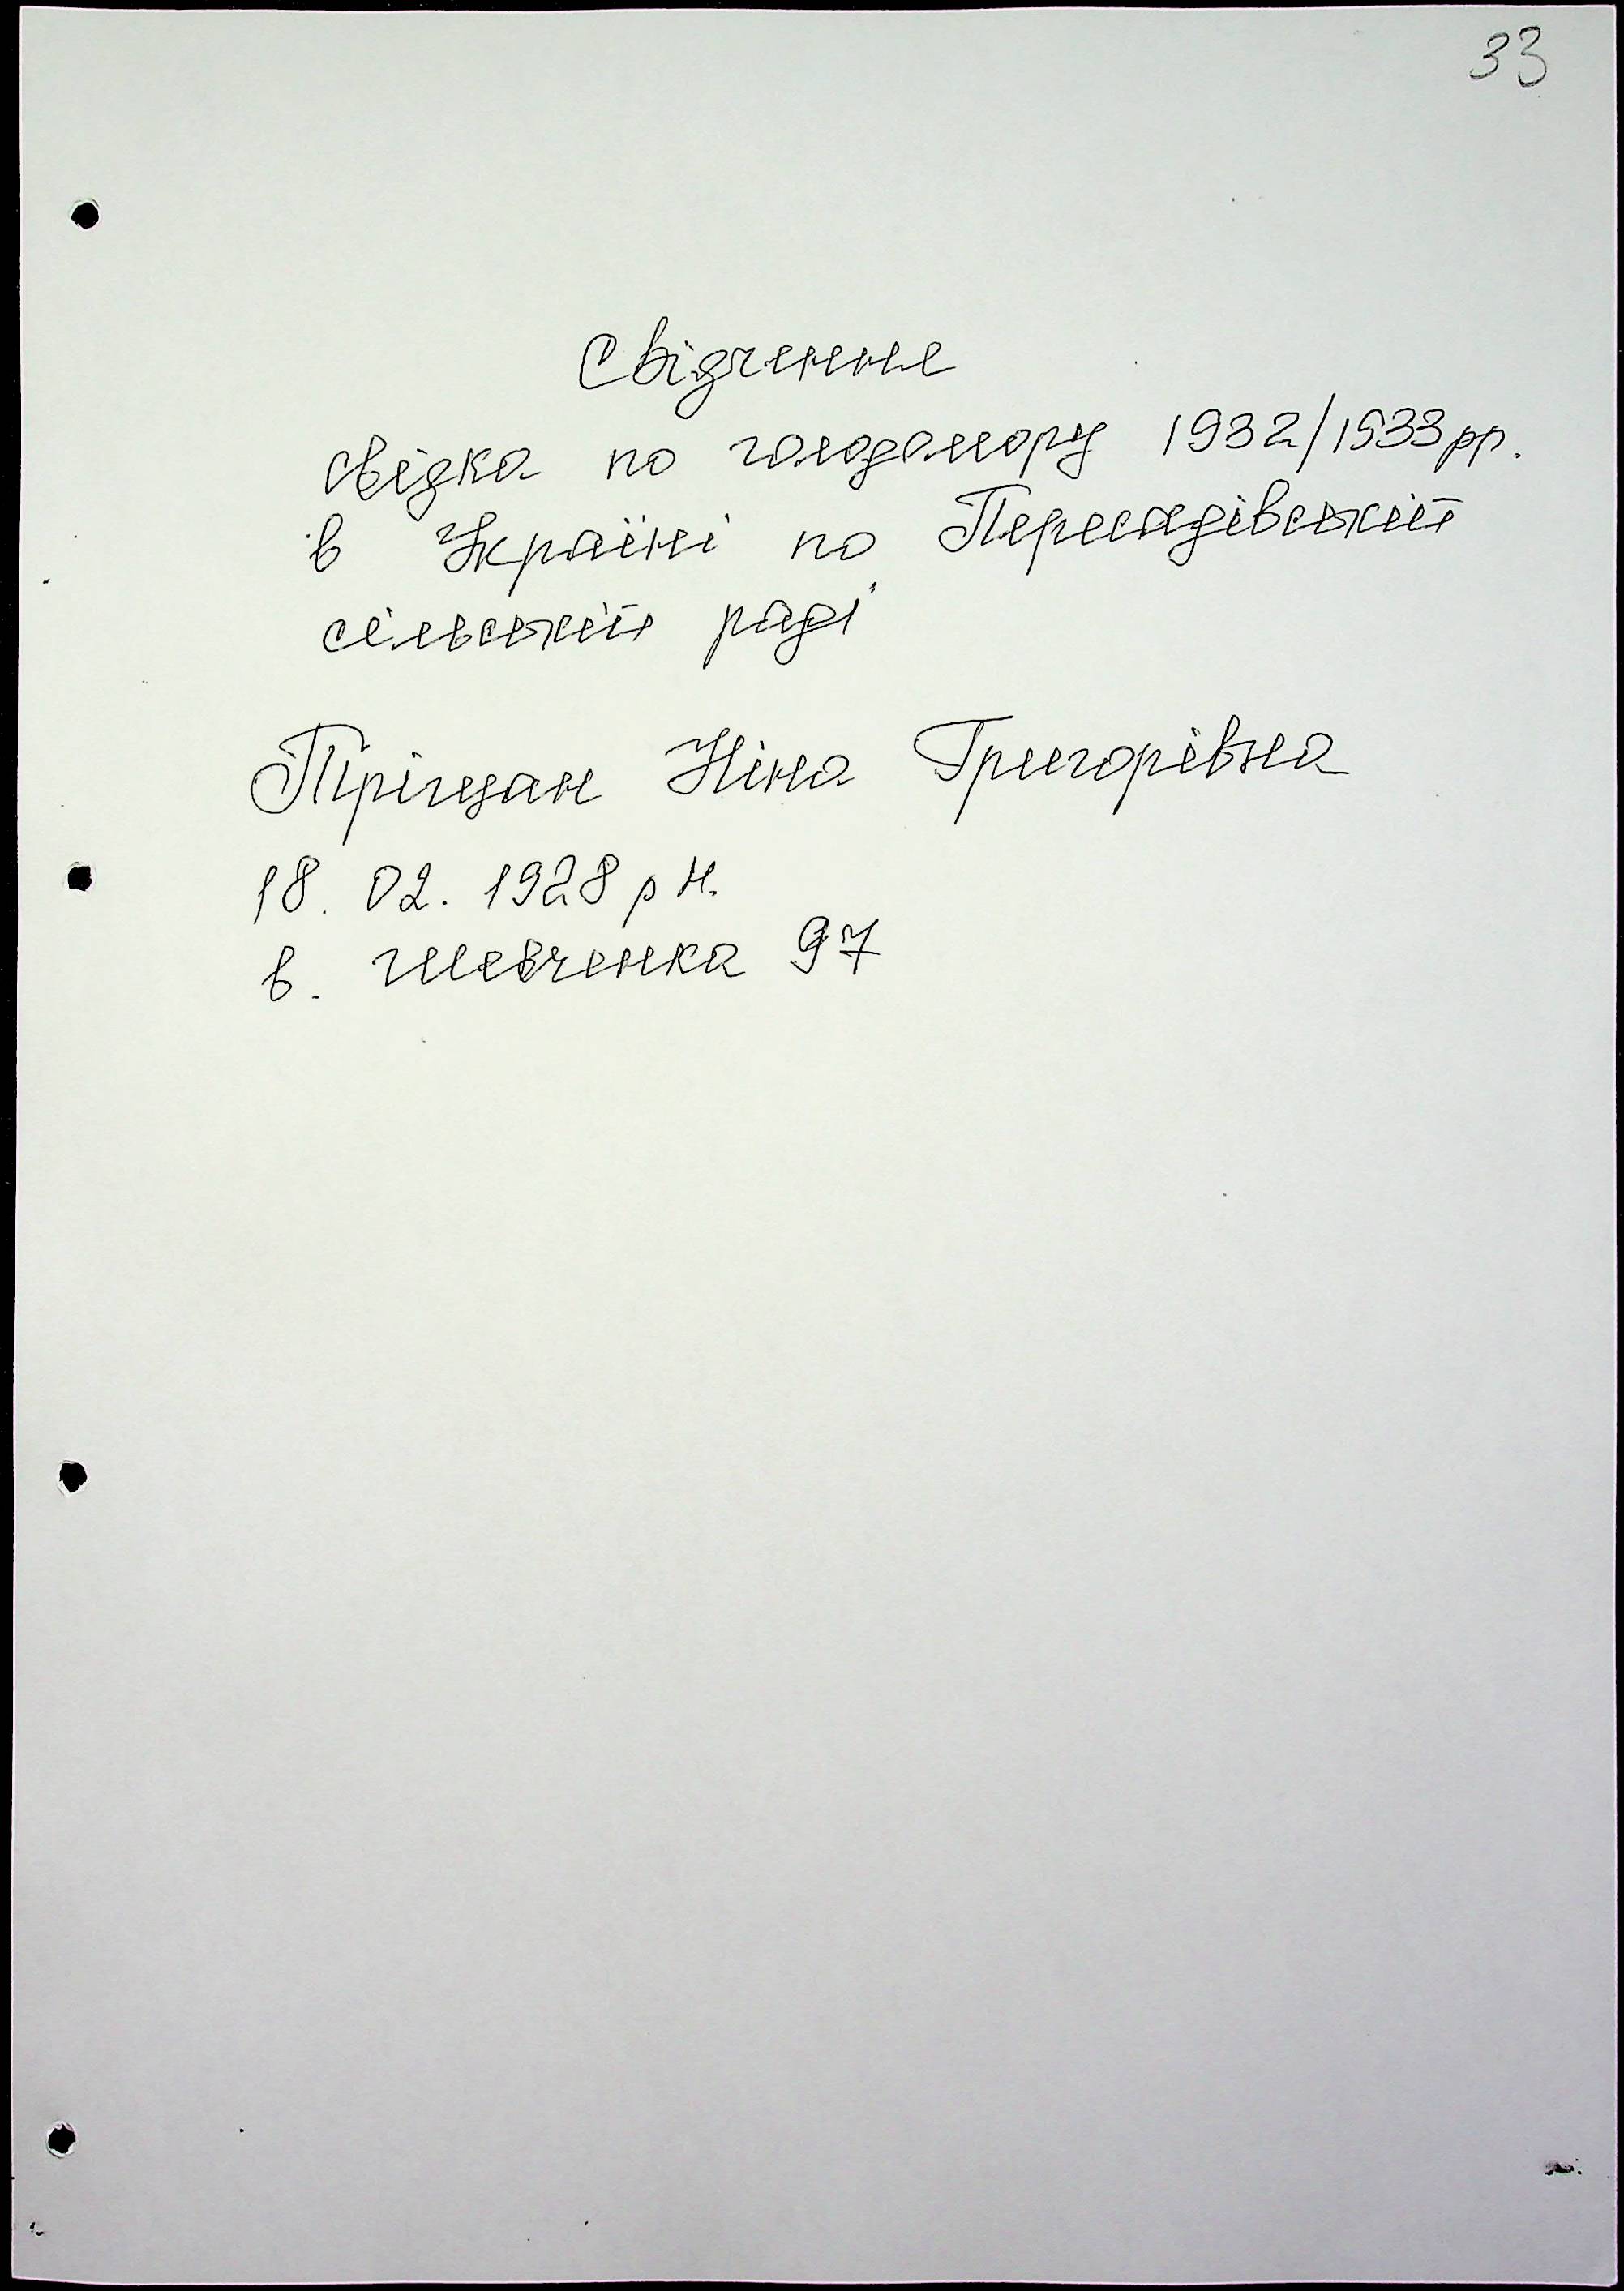 33
Свідчення
свідка по голодомору 1932/1933 рр.
в Україні по Пересадівській
сільській раді
Пріґуан Ніна Григорівна
18. 02. 1928 р н.
в. Шевченка 97